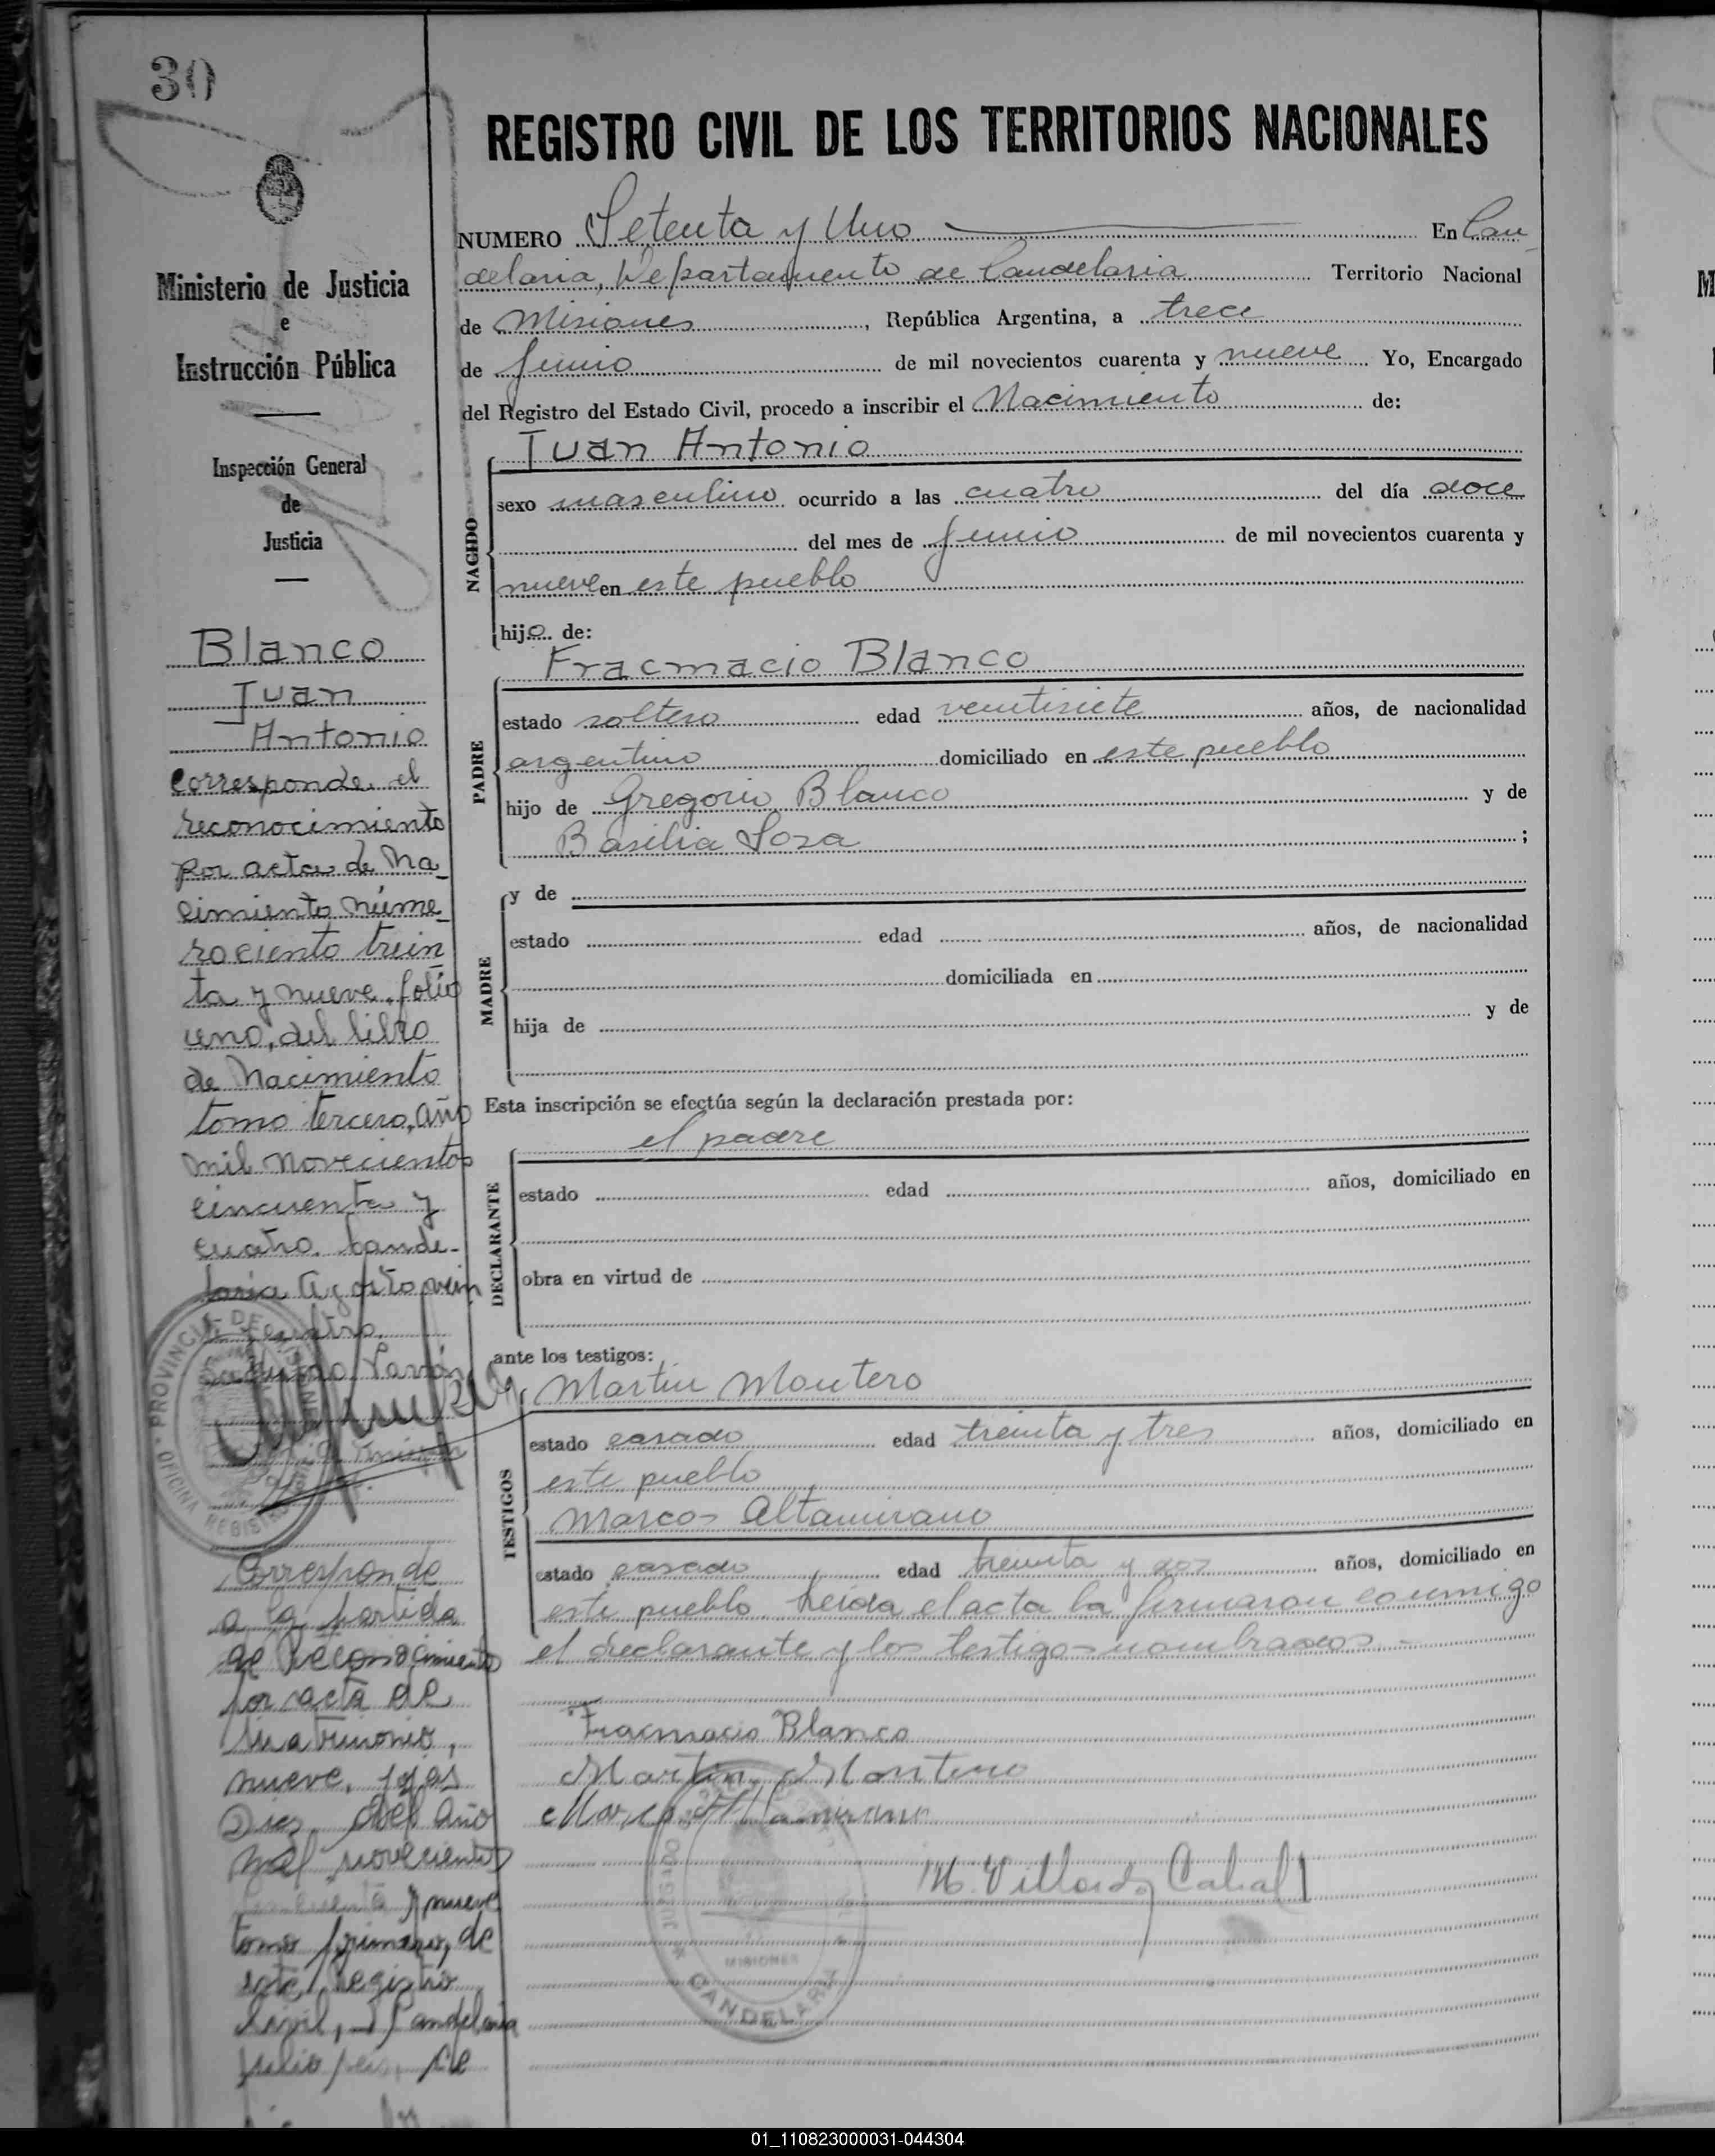 30
Ministerio de Justicia
e
Instrucción Pública
Inspección General
de
Justicia
Blanco
Juan
Antonio
Corresponde el
reconocimiento
por acta de Na_
cimiento núme_
ro ciento trein
ta y nueve, folio
uno, del libro
de Nacimiento
tomo tercero, año
mil novecientos
cincuenta y
cuatro. Cande-
laria Agosto vein
PROVINCIA DE MISIONES
OFICINA REGISTRO
Corresponde
a la partida
de Reconocimiento
por acta de
Matrimonio,
nueve, fojas
Diez del año
mil novecientos
y nueve
tomo primero, de
este registro
Civil, Candelaria
julio de
REGISTRO CIVIL DE LOS TERRITORIOS NACIONALES
NUMERO Setenta y Uno En Can_
delaria, Departamento de Candelaria Territorio Nacional
de Misiones, República Argentina, a trece
de Junio de mil novecientos cuarenta y nueve Yo, Encargado
del Registro del Estado Civil, procedo a inscribir el Nacimiento de:
Juan Antonio
NACIDO
sexo masculino ocurrido a las cuatro del día doce
del mes de Junio de mil novecientos cuarenta y
nueve en este pueblo
hijo de:
Fracmacio Blanco
PADRE
estado soltero edad ventisiete años, de nacionalidad
argentino domiciliado en este pueblo
hijo de Gregorio Blanco y de
Basilia Sosa ;
y de
MADRE
estado edad años, de nacionalidad
domiciliada en
hija de y de
Esta inscripción se efectúa según la declaración prestada por:
el padre
DECLARANTE
estado edad años, domiciliado en
obra en virtud de
ante los testigos:
Martin Montero
TESTIGOS
estado casado edad treinta y tres años, domiciliado en
este pueblo
Marcos Altamirano
estado casado edad treinta y dos años, domiciliado en
este pueblo. Leida el acta la firmaron conmigo
el declarante y los testigos nombrados.-
Fracmacio Blanco
Martin Montero
Marcos Altamirano
M. Villordo Cabal
JUZGADO
MISIONES
CANDELARIA
01_110823000031-044304